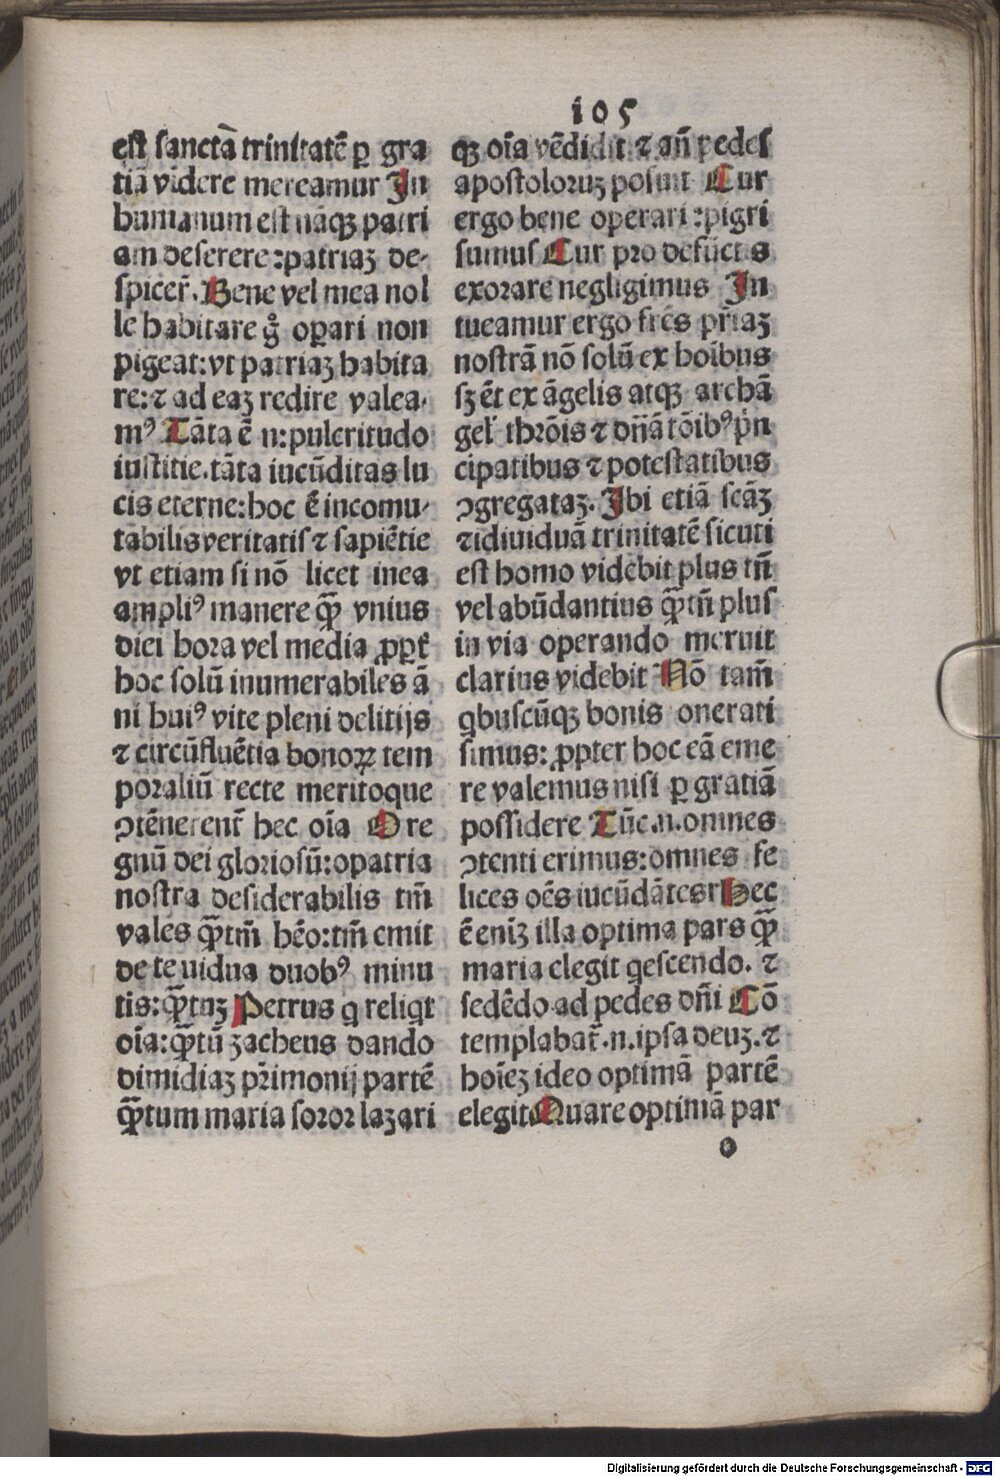 105
est sanctā trinitatē ꝑ gra
tiā videre mereamur In
humanum est nāqꝫ patri
am deserere:patriaꝫ de-
spicer̄. Bene vel mea nol
le habitare gͦ oꝑari non
pigeat:vt patriaꝫ habita
re:⁊ ad eaꝫ redire valea-
mꝰ Tāta ē n:pulcritudo
iustitie.tāta iucūditas lu
cis eterne:hoc ē incomu-
tabilis veritatis ⁊ sapiētie
vt etiam si nō licet inea
ampliꝰ manere qᷓꝫ vnius
diei hora vel media ꝓpt̄
hoc solū inumerabiles ā
ni huiꝰ vite pleni delitijs
⁊ circūfluētia bonoꝝ tem
poraliū recte meritoque
ↄtēnerent̄ hec oīa O re
gnū dei gloriosū:opatria
nostra desiderabilis tm̄
vales qᷓꝫtm̄ hēo:tm̄ emit
de te uidua duobꝰ minu
tis:qᷓꝫtuꝫ Petrus q reliqt
oīa:qᷓꝫtū zacheus dando
dimidiaꝫ pr̄imonij partē
qᷓꝫtum maria soror lazari
qꝫ oīa vēdidit ⁊ an̄ pedes
apostoloruꝫ posuit Cur
ergo bene operari :pigri
sumus Cur pro defūctis
exorare negligimus In
tueamur ergo frēs pr̄iaꝫ
nostrā nō solū ex hoībus
sꝫ ēt ex āgelis atqꝫ archā
gel' thrōis ⁊ dn̄ātōibꝰ pⁱn
cipatibus ⁊ potestatibus
ↄgregataꝫ. Ibi etiā scāꝫ
⁊idiuiduā trinitatē sicuti
est homo videbit plus tn̄
vel abūdantius qᷓꝫtū plus
in via operando meruit
clarius videbit Nō tam̄
qbuscūqꝫ bonis onerati
simus: ꝓpter hoc eā eme
re valemus nisi ꝑ gratiā
possidere Tūc.n.omnes
ↄtenti erimus:omnes fe
lices oēs iucūdātes Hec
ē eniꝫ illa optima pars qᷓꝫ
maria elegit qescendo. ⁊
sedēdo ad pedes dn̄i Cō
templabat̄.n.ipsa deuꝫ.⁊
hoīeꝫ ideo optimā partē
elegit Quare optimā par
o
Digitalisierung gefördert durch die Deutsche Forschungsgemeinschaft - DFG